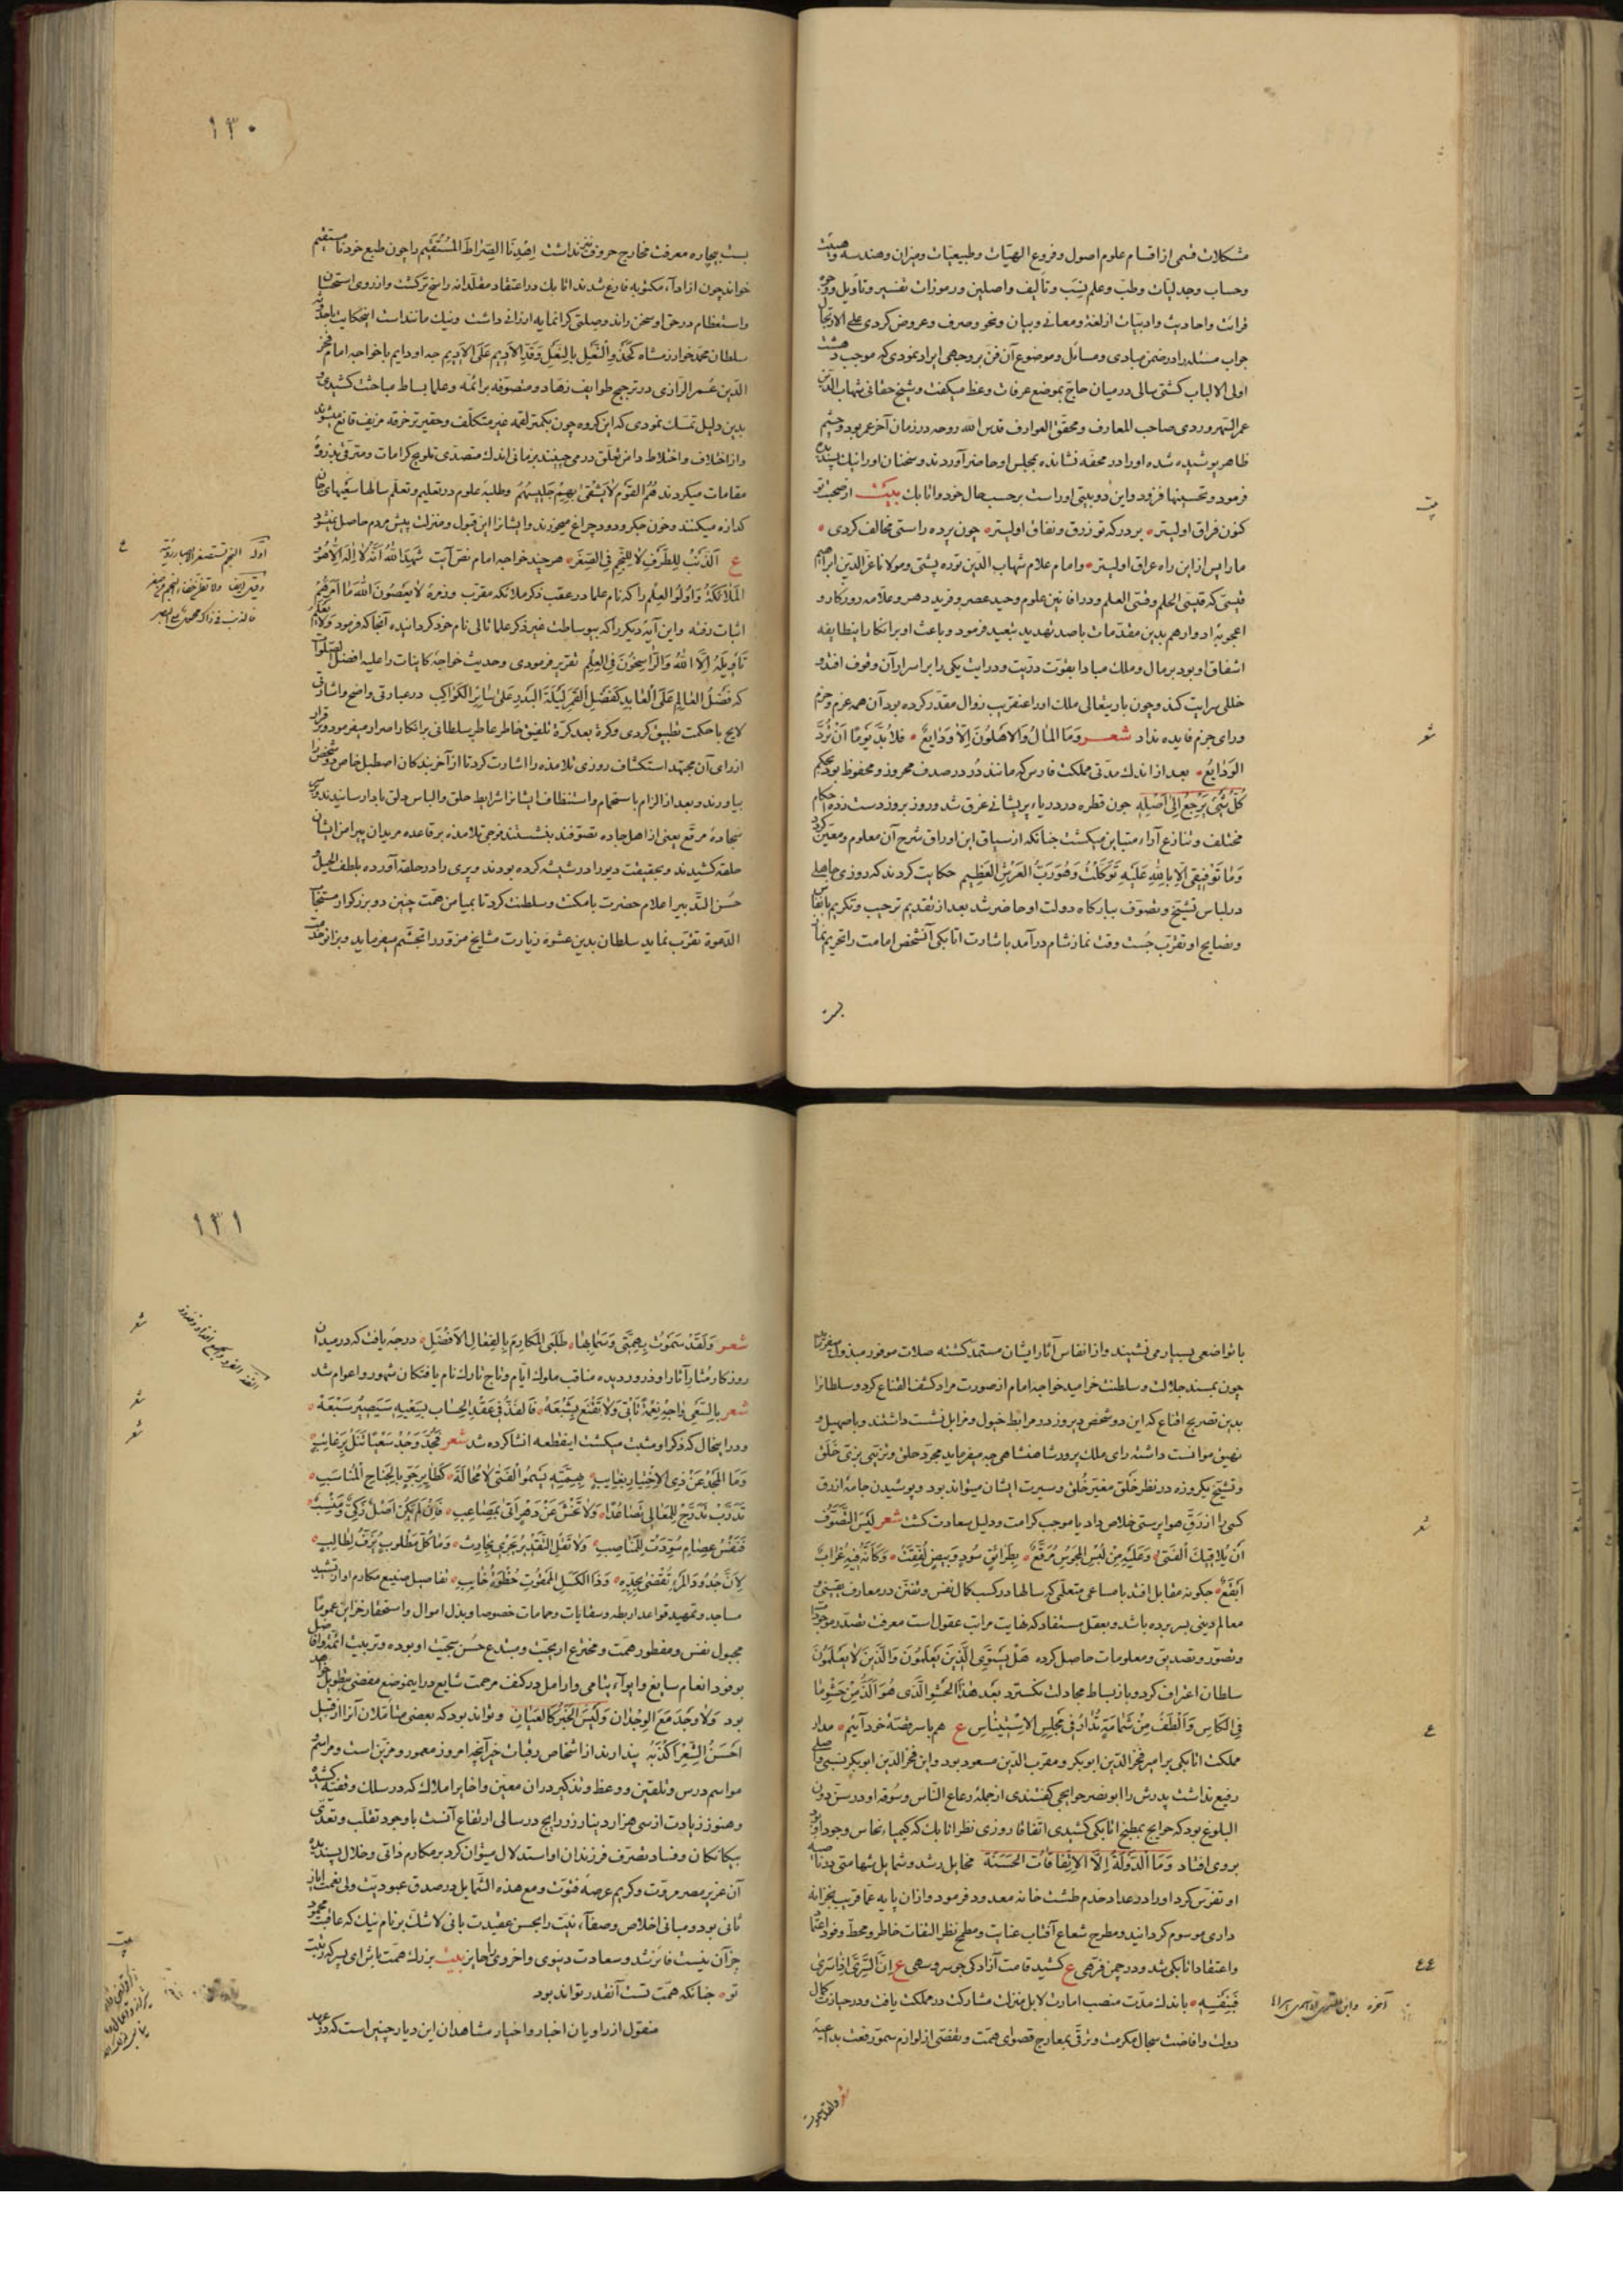 مشکلات قسمی از اقسام علوم اصول و فروع الهیّات و طبیعیّات و میزان و هندسه و هیئت
و حساب و جدلیّات و طبّ و علم نسب و تألیف واصلین و رموزات تفسیر و تأویل و وجوه
قرائت و احادیث و ادبیّات از لغة و معانی و بیان و نحو و صرف و عروض کردی علی الارتجال
جواب مسئله را در ضمن مبادی و مسائل و موضوع آن فنّ بر وجهی ایراد نمودی که موجب دهشت
اولی الالباب کشتی سالی در میان حاجّ بموضع عرفات وعظ میکفت و شیخ حقانی شهاب الدّین
عمر السّهروردی صاحب المعارف و محقق العوارف قدس الله روحه در زمان آخر عمر بود و چشم
ظاهر پوشیده شده او را در محفّه نشانده بمجلس او حاضر آوردند و سخنان او را نیک پسندیده
فرمود و تحسینها فزود و این دوبیتی اوراست بر حسب حال خود و اتابک بیت از صحبت تو
کنون فراق اولیتر بر درکه تو زرق و نفاق اولیتر چون پرده راستی مخالف کردی
ما را پس ازین راه عراق اولیتر و امام علام شهاب الدّین توره پشتی و مولانا عزّ الدّین ابراهیم
قیسی که قیسی الحلم وقسّی العلم و در افانین علوم وحید عصر و فرید دهر و علّامه روزکار و
اعجوبهٔ ادوار هم بدین مقدّمات باصد تهدید تبعید فرمود و باعث او بر انکار این طایفه
اشفاق او بود بر مال و ملک مبادا بقوّت درّیت و درایت یکی را بر اسرار آن وقوف افتد و
خللی سرایت کند و چون باریتعالی ملک او را عنقریب زوال مقدّر کرده بود آن همه عزم و حزم
و رای جزم فایده نداد شعر وَمَا المَالُ وَالاَهلُونَ اِلاّ وَدَایِعٌ فلا بُدَّ یَومًا اَنْ تُرَدَّ
الوَدَایِعُ بعد از اندک مدّتی مملکت فارس که مانند دُر در صدف محروز و محفوظ بود بحکم
کُلُّ شَیْءٍ یَرْجِعُ اِلی اَصْلِهِ چون قطره در دریاء پریشانی غرق شد و روز بروز دست زده احکام
مختلف و تنازع آراء متباین میکشت چنانکه از سیاق این اوراق شرح آن معلوم و معیّن کردد
وَمَا تَوْفِیقِی اِلّا بِاللهِ عَلَیْهِ تَوَکَّلْتُ وَهُوَ رَبُّ العَرْشِ العَظِیمِ حکایت کردند که روزی جاهلی
در لباس تشیّخ و تصوّف ببارکاه دولت او حاضر شد بعد از تقدیم ترحیب و تکریم بانفاس
و نصایح او تقرّب جُست وقت نماز شام درآمد باشارت اتابکی آنشخص امامت را تحریم نماز
بست
۱۳۰
بست بیچاره معرفت مخارج حروف نداشت اِهْدِنَا الصِّرَاطَ المُسْتَقِیم را چون طبع خود نا مستقیم
خواند چون از اداء مکتوبه فارغ شدند اتابک در اعتقاد مقلّدانه راسخ تر کشت و از روی استحسان
و استعظام در حق او سخن راند و صلتی کرانمایه ارزانی داشت و نیک مانند است اینحکایت باجد
سلطان محمّد خوارزمشاه کَحَذْوِ النَّعْلِ بِالنَّعْلِ وَقَدِّ الاَدِیمِ عَلَی الاَدِیمِ چه او دایم با خواجه امام فخر
الدّین عُمر الرّازی در ترجیح طوایف زهاد و متصوّفه بر ائمّه و علما بساط مباحثت کشیدی و
بدین دلیل تمسّک نمودی که این کروه چون بکمتر لقمه غیر متکلّف و حقیرتر خرقه مزیف قانع میشوند
و از اختلاف و اختلاط دامن تعلّق در می چینند بزمانی اندک متصدّی تلویح کرامات و مترقّی بذروهٔ
مقامات میکردند هُمُ القَوْمُ لاَیَشْقی بِهِمْ جَلِیسُهُمْ وطلبهٔ علوم در تعلیم و تعلّم سالها سعیهای جان
کدازه میکنند و خون جکر و دود چراغ میخورند و ایشانرا این قبول و منزلت پیش مردم حاصل نمیشود
ع اَلذَّنْبُ لِلطَّرْفِ لا لِلنَّجْمِ فی الصِّغَر هر چند خواجه امام نصّ آیت شَهِدَ اللهُ اَنَّهُ لاَ اِلهَ اِلاّ هُوَ
المَلائِکَةُ وَاُولُوا العِلْمِ را که نام علما در عقب ذکر ملائکه مقرّب و زمرهٔ لاَ یَعْصُونَ اللهَ مَا اَمَرَهُمْ
اثبات رفته و این آیهٔ دیکر را که بیوساطت غیر ذکر علما تالی نام خود کردانیده آنجا که فرمود وَلا یَعْلَمُ
تَاْوِیلَهُ اِلاّ اللهُ وَالرَّاسِخُونَ فِی العِلْمِ تقریر فرمودی و حدیث خواجهٔ کاینات را علیه افضل الصلوات
که فَضْلُ العَالِمِ عَلَی العَابِدِ کَفَضْلِ القَمَرِ لَیْلَةَ البَدْرِ عَلی سَائِرِ الکَوَاکِبِ در عبارتی واضح و اشارتی
لایح با حکمت تطبیق کردی و کرهٔ بعد کرّة تلفیق خاطر عاطر سلطانی بر انکار اصرار میفرمود و قرار
از رای آن مجتهد استکشاف روزی تلامذه را اشارت کرد تا از آخر بندکان اصطبل خاص دو شخص را
بیاورند و بعد از الزام باستحمام و استنظاف ایشانرا شرایط حلق و الباس دلق بادا رسانیدند و بر
سجادهٔ مرقّع یعنی از اهل جاده تصوّفند بنشستند فوجی تلامذه بر قاعده مریدان پیرامن ایشان
حلقه کشیدند و بحقیقت دیو را در شیشه کرده بودند و پری را در حلقه آورده بلطف الحیل و
حُسن التّدبیر اعلام حضرت با مکنت و سلطنت کرد تا بمیامن همّت چنین دو بزرکوار مستجاب
الدّعوة تقرّب نماید سلطان بدین عشوه زیارت مشایخ مزوّر را تجشّم میفرماید و بزانو خدمت
ع
اوّله النجم تستصغر الابصار رؤیته
با تواضعی بسیار می نشیند و از انفاس آثار ایشان مستمد کشته صلات موفور مبذول میفرماید
چون بمسند جلالت و سلطنت خرامید خواجه امام از صورت مراد کشف القناع کرد و سلطانرا
بدین تصریح اقناع که این دو شخص دیروز در مرابط خیول و مزابل نشست داشتند و با صهیل و
نهیق موانست داشته رای ملک پرور شاهنشاهی چه میفرماید بمجرّد حلق و تزیّی بزیّ خَلَق
و تشیّخ یکروزه در نظر خَلق مغیّر خُلق و سیرت ایشان میتواند بود و پوشیدن جامهٔ ازرق
کسی را از رزق هواپرستی خلاص داد یا موجب کرامت و دلیل سعادت کشت شعر لَیْسَ التَّصَوُّفُ
اَنْ یُلاقِیکَ الفَتَی وَعَلَیْهِ مِنْ لُبْسِ المَجُوسِ مُرَقَّعٌ بِطَرَائِقٍ سُودٍ وَبِیضٍ لُفِّقَتْ وَکَاَنَّهُ فِیهِ غُرَابٌ
اَبْقَعُ چکونه مقابل افتد با مساعی متعلّمی که سالها در کسب کمال نفس و تفنّن در معارف یقینی و
معالم دینی بسر برده باشد و بعقل مستفاد که غایت مراتب عقول است معرفت تصدّر موجودات
و تصوّر و تصدیق و معلومات حاصل کرده هَلْ یَسْتَوِی الَّذِینَ یَعْلَمُونَ وَالَّذِینَ لاَ یَعْلَمُونَ
سلطان اعتراف کرد و باز بساط مجادلت نکسترد بَعْدَ هذَا الحَشْوِ الَّذی هُوَ اَلَذُّ مِنْ حَشْوِ مَا
فِی الکَاسِ وَاَلْطَفُ مِنْ شَمَّامَةٍ تُدَارُ فِی مَجْلِسِ الاِسْتِینَاسِ ع هم با سر قصّهٔ خود آئیم مدار
مملکت اتابکی بر امیر فخر الدّین ابوبکر و مقرّب الدّین مسعود بود و این فخر الدّین ابوبکر نسبی و اصلی
رفیع نداشت پدرش را ابونصر حوایجی کفتندی از جملهٔ رعاع النّاس و سُوقه او در سنّ دون
البلوغ بود که حوایج بمطبخ اتابکی کشیدی اتفاقا روزی نظر اتابک که کیمیاء نحاس وجود او بود
بروی افتاد وَمَا الدَّوْلَةُ اِلاَّ الاِتِّفَاقَاتُ الحَسَنَةُ مخایل رشد و شمایل شهامتی در ناصیه
او تفرّس کرد او را در عداد خدم طشت خانه معدود فرمود و از آن پایه عمّا قریب بخزانه
داری موسوم کردانید و مطرح شعاع آفتاب عنایت و مطمح نظر التفات خاطر و محطّ وفود اعتماد
و اعتقاد اتابکی شد و در چمن فرّهی ع کشید قامت آزادکی چو سرو سهی ع اِنَّ السَّرِیَّ اِذَا سَرَی
فَبِنَفْسِهِ باندک مدّت منصب امارت لا بل منزلت مشارکت در مملکت یافت و در حیازت کمال
دولت و افاضت سجال مکرمت و ترقّی بمعارج قصوای همّت و تفصّی از لوازم سموّ رفعت بداعیه
شعر ولقد سموت
۱۳۱
شعر وَلَقَدْ سَمَوْتُ بِهِمَّتِی وَسَمَا بِهَا طَلَبِی المَکَارِمَ بِالفِعَالِ الاَفْضَلِ درجهٔ یافت که در میدان
روزکار مُثار آثار او ذرور دیده مناقب ملوک ایّام و تاج تارک نام یافتکان شهور و اعوام شد
شعر بِالسَّعْیِ وَاجِهْ نِعْمَةً تَأتِی وَلاَ تَقْنَعْ بِسَبْعَهْ فَالفَذُّ فِی عَقْدِ الحِسَابِ بِسَعْیِهِ سَیَصِیرُ سَبْعَهْ
و در اینحال که ذکر او مثبت میکشت اینقطعه انشا کرده شد شعر فَجُدَّ وَجُدْ سَعْیًا تَنَلْ بِرَغَائِبٍ
وَمَا المَجْدُ عَنْ ذِی الاِخْتِیَارِ بِغَایِبِ بِهِمَّتِهِ یَسْمُو الفَتَی لاَ مُحَالَةَ کَطَایِرِ جَوٍّ بِالجَنَاحِ المُنَاسِبِ
تَدَرَّبْ تَدَرَّجْ لِلمَعَالِی تَصَاعُدًا وَلاَ تَخْشَ عَنْ دَهْرٍ اَتَی بِمَصَاعِبِ فَاِنْ لَمْ یَکُنْ اَصْلٌ زَکِیٌّ وَمَنْسِبٌ
فَنَفْسُ عِصَامٍ سُوِّدَتْ لِلمَنَاصِبِ وَلاَ تَقُلِ التَّقْدِیرُ یَجْرِی بِحَادِثٍ وَمَا کُلُّ مَطْلُوبٍ یُزَفُّ لِطَالِبِ
لِاَنَّ جُدُودَ المَرْءِ تُقْضَی بِجِدِّهِ وَذَا الکَسَلِ المَمْقُوتِ حُظْوَهُ خَایِبِ تفاصیل صنیع مکارم او از تشیید
مساجد و تمهید قواعد اربطه و سقایات و حمامات خصوصا و بذل اموال و استحقار خزاین عموما
مجبول نفس و مفطور همّت و مخترع اریحیّت و مبتدع حُسن سجیّت او بوده و تربیت ائمّه و افاضل
بوفود انعام سایغ و ایواء یتامی و ارامل در کنف مرحمت شایع در اینموضع مفضی بتطویل خواهد
بود وَلاَ وَجْدَ مَعَ الوِجْدَانِ وَلَیْسَ الخَبَرُ کَالعَیَانِ و تواند بود که بعضی متاملان آنرا از قبیل
اَحْسَنُ الشِّعْرِ اَکْذَبُهُ پندارند از اشخاص رقبات خیر آنچه امروز معمور و مزیّن است و مراسم
مواسم درس و تلقین و وعظ و تذکیر در آن معیّن و اخایر املاک که در سلک وقفیّه کشیده
و هنوز زیادت از سی هزار دینار زر رایج در سالی ارتفاع آنست با وجود تغلّب و تعدّی
بیکانکان و فساد تصرّف فرزندان او استدلال میتوان کرد بر مکارم ذاتی و خلال پسندیده
آن عزیز مصر مروّت و کریم عرصهٔ فتوّت و مع هذه الشّمایل در صدق عبودیّت ولی نعمت ایاز
ثانی بود و مبانی اخلاص و صفاء نیّت را بحسن عقیدت بانی لاشکّ بر نام نیک که عاقبت محمود
جز آن نیست فائز شد و سعادت دنیوی و اخروی را حایز بیت بزرک همّت باش ای پسر که رتبت
تو چنانکه همّت تست آنقدر تواند بود
منقول از راویان اخبار و اخبار مشاهدان این دیار چنین است که در عهد
شعر
شعر
شعر
بیت